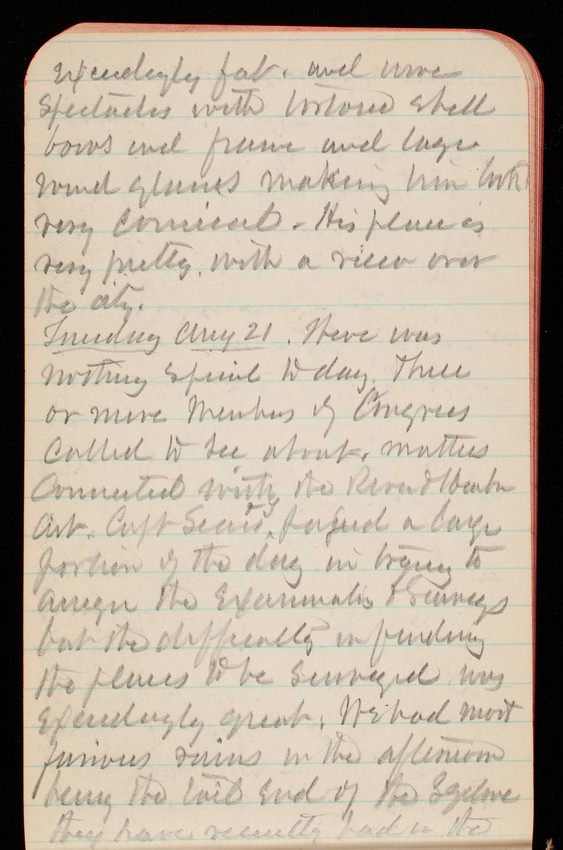 exceedingly fat. and wore
Spectacles with tortoise shell
bows and frame and large
round glasses making him look
very comical. His place is
very pretty, with a view over
the city.
Tuesday Aug 21. There was
nothing special to day. Three
or more Members of Congress
called to see about matters
connected with the River & Harbor
Act. Capt & I passed a large
portion of the day in trying to
arrange the Examinations & Surveys
but the difficulty in finding
the places to be surveyed was
exceedingly great. We had most
furious rains in the afternoon
being the tail end of the Cyclone
they have recently had in the